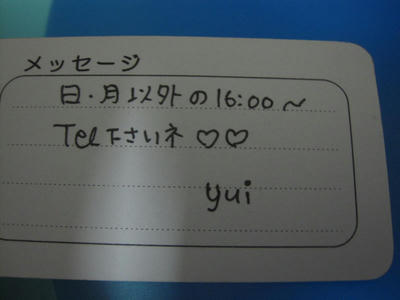 メッセージ
日・月以外の16:00～
Tel下さいネ♡♡
yui